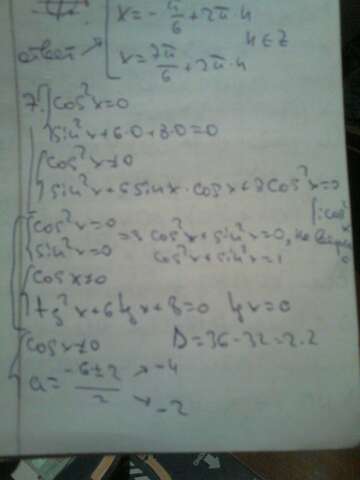 x = -π/6 + 2π·n
n ∈ Z
ответ
x = 7π/6 + 2π·n
7. cos²x=0
sin²x+6·0+8·0=0
cos²x≠0
sin²x+6sinx·cosx+8cos²x=0
|:cos²x
cos²x=0
sin²x=0
=> cos²x+sin²x=0, не
cos²x+sin²x=1
cosx≠0
tg²x+6tgx+8=0 tgx=a
cosx≠0 D=36-32=2·2
a= (-6±2)/2 → -4
→ -2